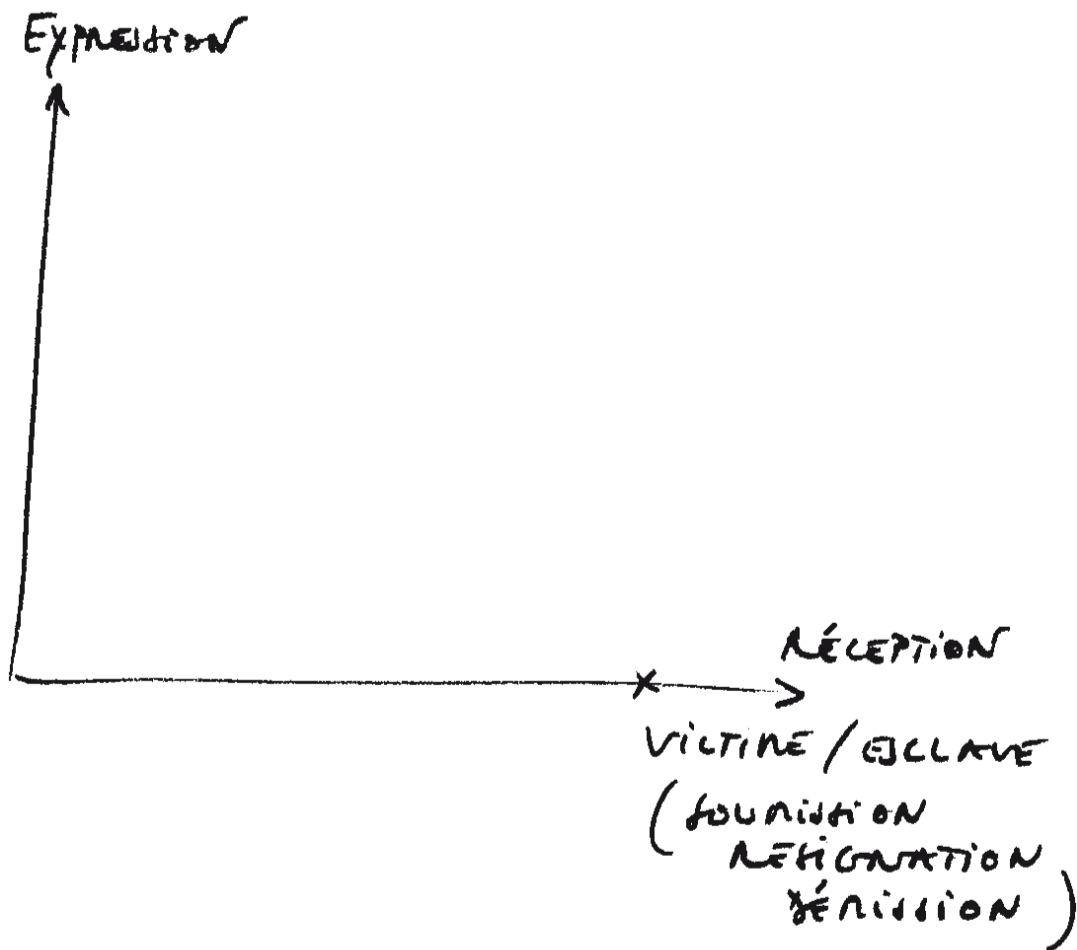 EXPRESSION
RÉCEPTION
VICTIME / ESCLAVE
(SOUMISSION
RÉSIGNATION
DÉMISSION)